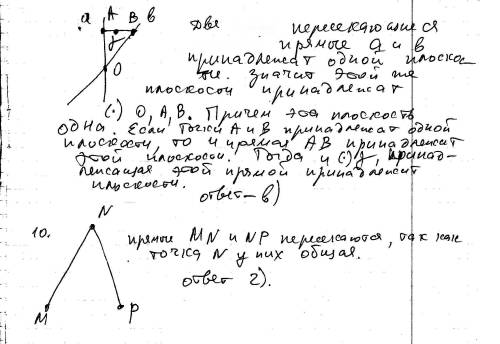 a A B b
y
O
Две пересекающиеся
прямые a и b
принадлежат одной плоскос-
ти. Значит этой же
плоскости принадлежат
(·) O, A, B. Причем эта плоскость
одна. Если точки A и B принадлежат одной
плоскости, то и прямая AB принадлежит
этой плоскости. Тогда и (·) y, принад-
лежащая этой прямой принадлежит
плоскости.
ответ – в)
10.
N
M
P
прямые MN и NP пересекаются, так как
точка N у них общая.
ответ 2).